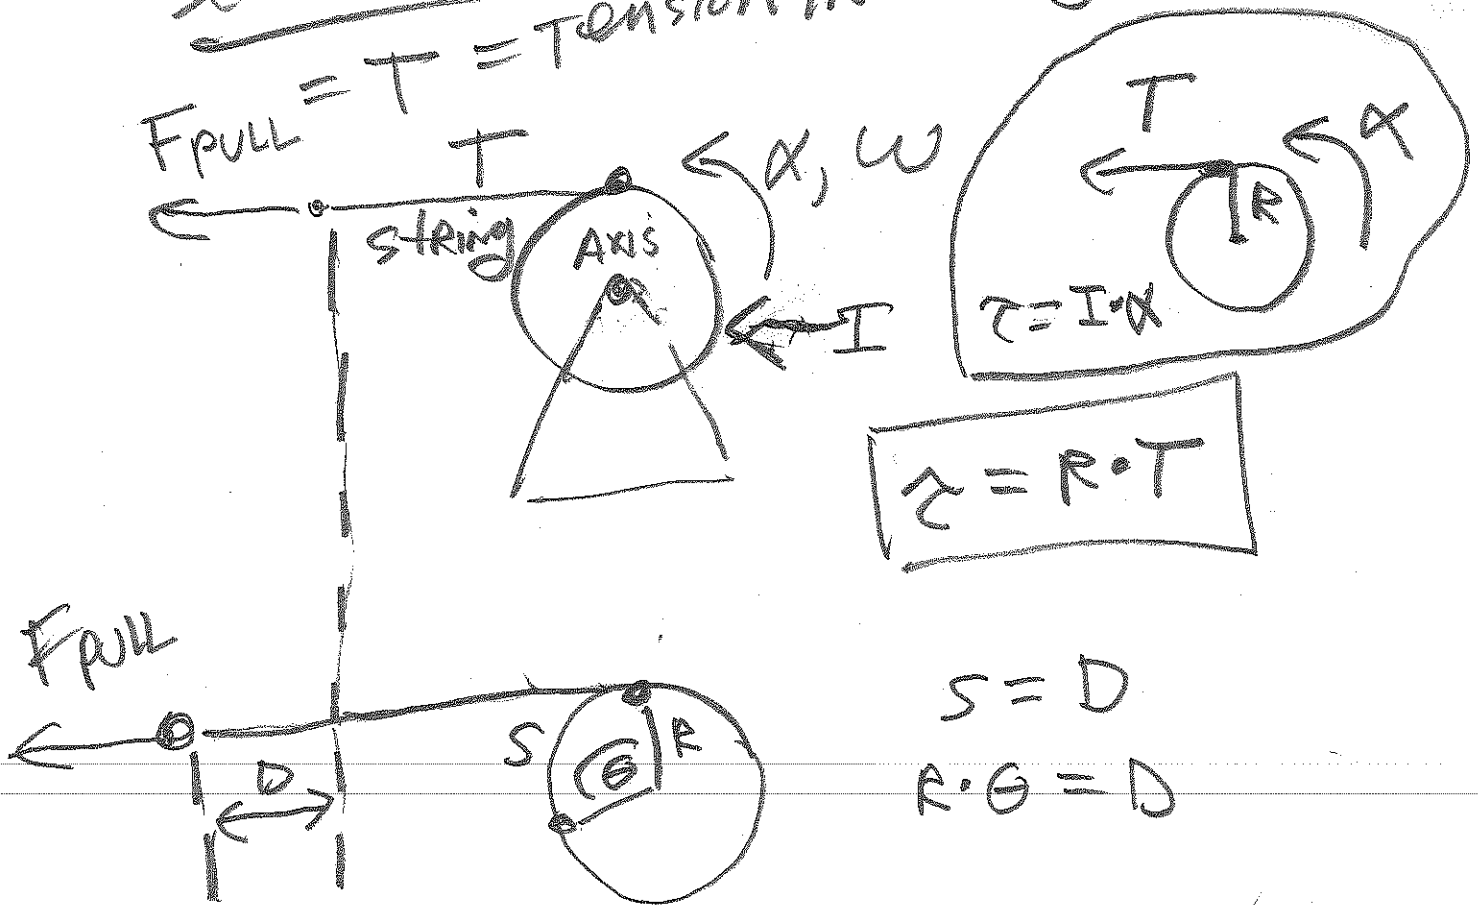 Fpull = T = Tension in
T
α, ω
string
AXIS
I
T
α
R
τ = I·α
τ = R·T
Fpull
S
θ
R
D
S = D
R·θ = D